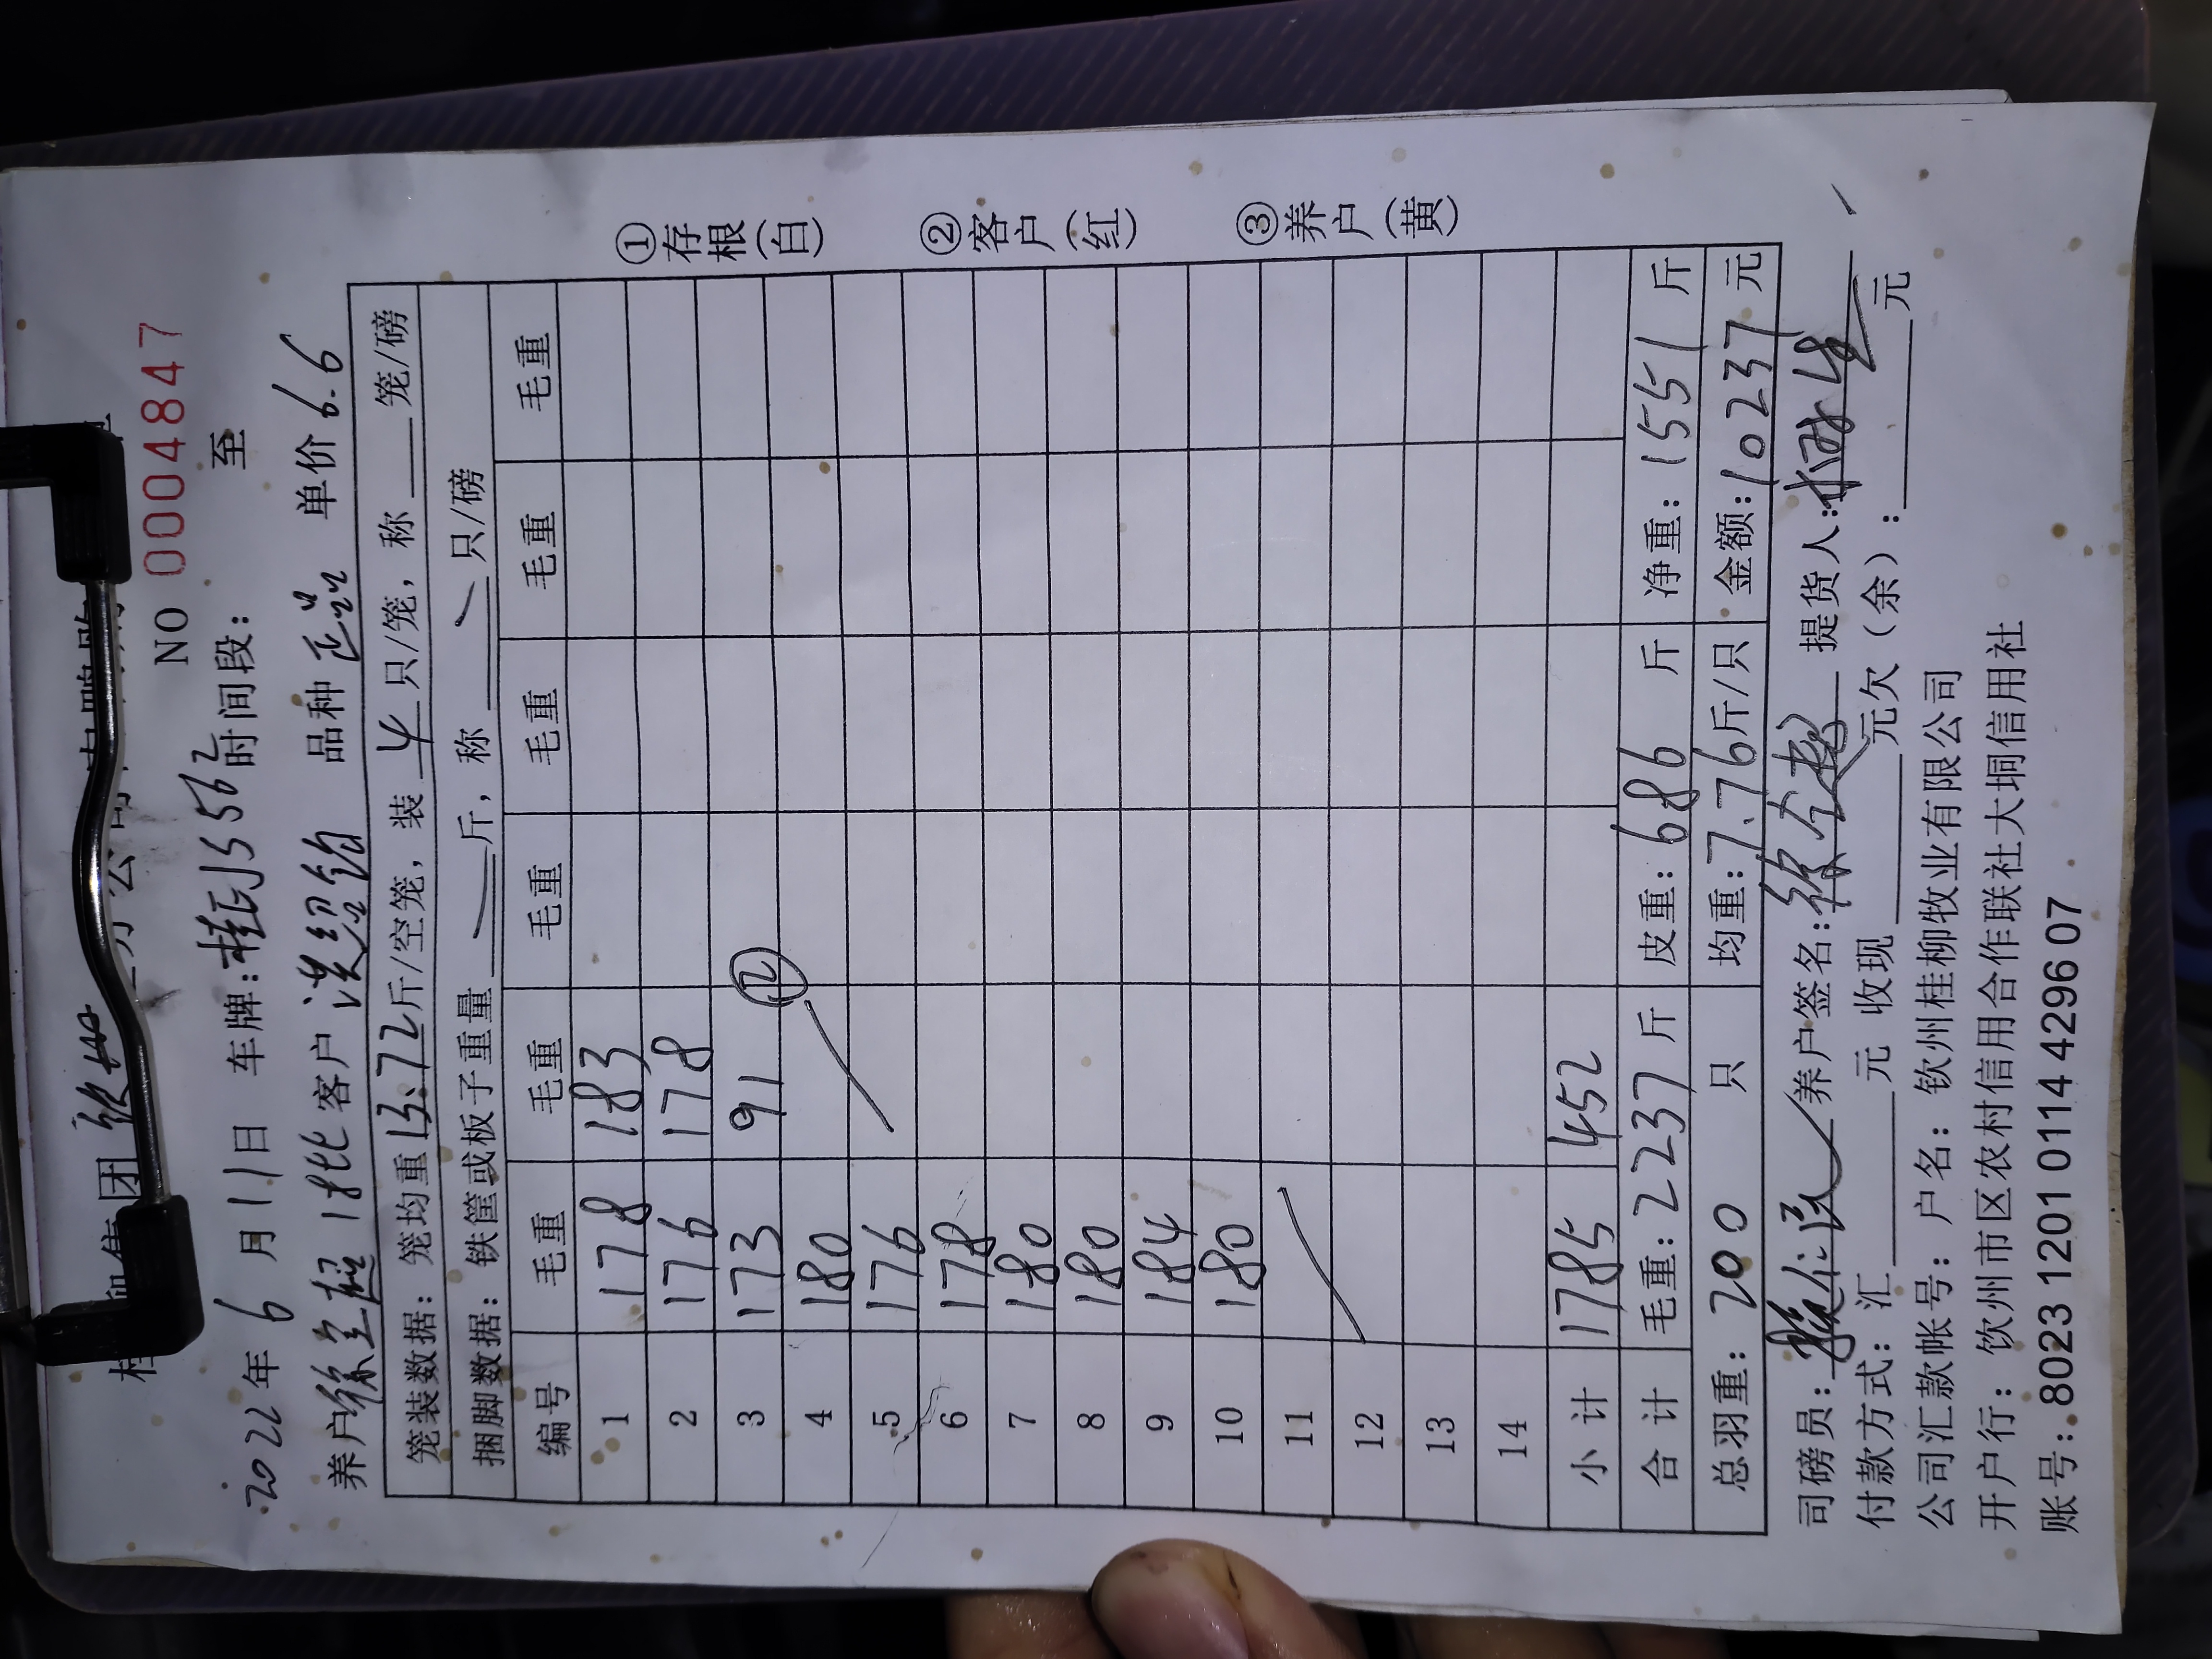 集团 钦州
NO 0004847
2022年6月11日 车牌: 桂 J5562 时间段: 至
养户 徐 超 18批 客户 洪绍 品种 正品 单价 6.6
笼装数据: 笼均重 13.72 斤/空笼, 装 4 只/笼, 称 笼/磅
捆脚数据: 铁筐或板子重量 斤, 称 只/磅
编号 毛重 毛重 毛重 毛重 毛重 毛重
1 178 183
2 176 178
3 173 91 ②
4 180
5 176
6 178
7 180
8 180
9 184
10 180
11
12
13
14
小计 1785 452
合计 毛重: 2237 斤 皮重: 686 斤 净重: 1551 斤
总羽重: 200 只 均重: 7.76 斤/只 金额: 10237 元
司磅员: 养户签名: 徐 超 提货人:
付款方式: 汇 元 收现 元欠(余): 元
公司汇款帐号: 户名: 钦州桂柳牧业有限公司
开户行: 钦州市区农村信用合作联社大垌信用社
账号: 8023 1201 0114 4296 07
①存根(白)
②客户(红)
③养户(黄)